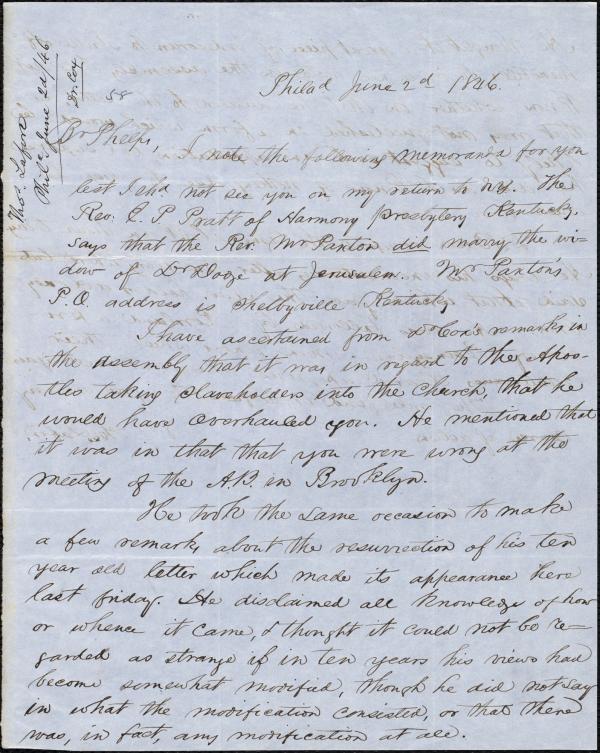 Thos. Lafon
Phila. June 2d/46
Dr. Cox
58
Philad June 2d 1846.
Br Phelps,
I note the following memoranda for you
lest I shd. not see you on my return to NY. The
Rev. E. P. Pratt of Harmony Presbytery Kentucky,
says that the Rev. Mr Paxton did marry the wi-
dow of Dr Dodge at Jerusalem. Mr Paxton's
P.O. address is Shelbyville Kentucky
I have ascertained from Dr Cox's remarks in
the assembly that it was in regard to the Apos-
tles taking slaveholders into the Church, that he
would have overhauled you. He mentioned that
it was in that that you were wrong at the
meeting of the A.B. in Brooklyn.
He took the same occasion to make
a few remarks about the resurrection of his ten
year old letter which made its appearance here
last friday. He disclaimed all knowledge of how
or whence it came, & thought it could not be re-
garded as strange if in ten years his views had
become somewhat modified, though he did not say
in what the modification consisted, or that there
was, in fact, any modification at all.